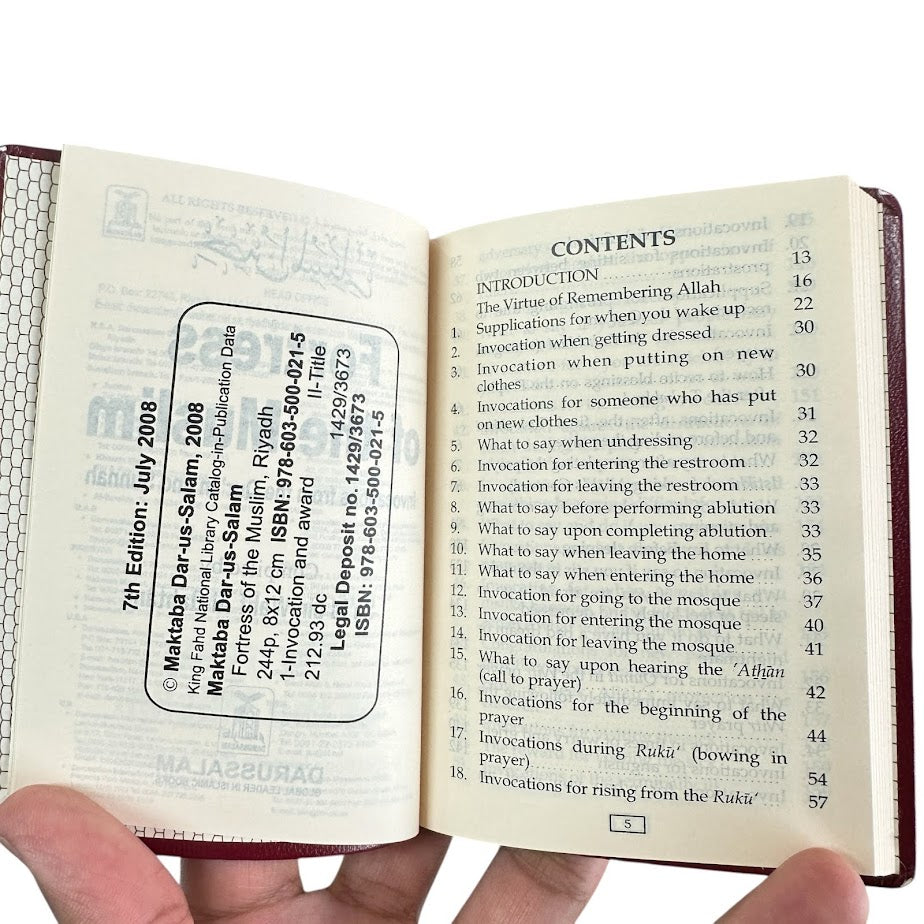 7th Edition: July 2008
© Maktaba Dar-us-Salam, 2008
King Fahd National Library Catalog-in-Publication Data
Maktaba Dar-us-Salam
Fortress of the Muslim, Riyadh
244p, 8x12 cm ISBN: 978-603-500-021-5
1-Invocation and award II-Title
212.93 dc 1429/3673
Legal Deposit no. 1429/3673
ISBN: 978-603-500-021-5
DARUSSALAM
GLOBAL LEADER IN ISLAMIC BOOKS
CONTENTS
INTRODUCTION 13
The Virtue of Remembering Allah 16
1. Supplications for when you wake up 22
2. Invocation when getting dressed 30
3. Invocation when putting on new
clothes 30
4. Invocations for someone who has put
on new clothes 31
5. What to say when undressing 32
6. Invocation for entering the restroom 32
7. Invocation for leaving the restroom 33
8. What to say before performing ablution 33
9. What to say upon completing ablution 33
10. What to say when leaving the home 35
11. What to say when entering the home 36
12. Invocation for going to the mosque 37
13. Invocation for entering the mosque 40
14. Invocation for leaving the mosque 41
15. What to say upon hearing the 'Aṯẖān
(call to prayer) 42
16. Invocations for the beginning of the
prayer 44
17. Invocations during Rukū‘ (bowing in
prayer) 54
18. Invocations for rising from the Rukū‘ 57
5